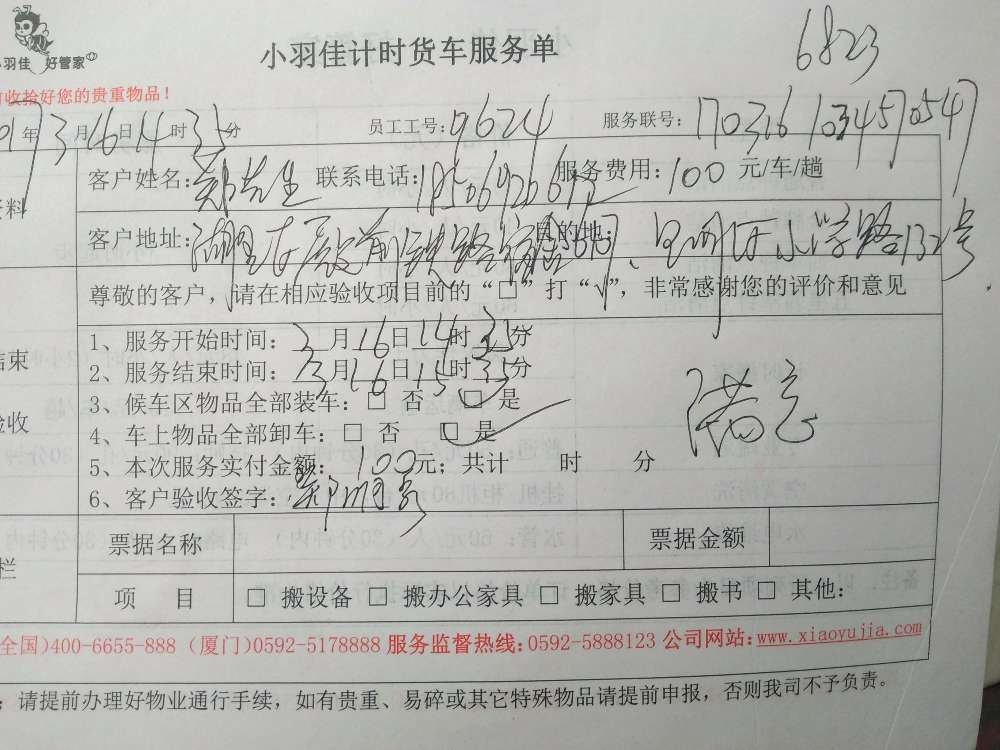 6823
小羽佳 好管家
小羽佳计时货车服务单
收拾好您的贵重物品！
年3月16日14时35分 员工工号：9624 服务联号：1703161034570547
客户姓名：郑先生 联系电话： 服务费用：100 元/车/趟
客户地址： 目的地： 小学路132号
尊敬的客户，请在相应验收项目前的“□”打“√”，非常感谢您的评价和意见
1、服务开始时间：3月16日14时35分
2、服务结束时间：3月16日15时35分
3、候车区物品全部装车：□ 否 □ 是
4、车上物品全部卸车：□ 否 □ 是
满意
5、本次服务实付金额：100元；共计 时 分
6、客户验收签字：
票据名称 票据金额
项 目 □ 搬设备 □ 搬办公家具 □ 搬家具 □ 搬书 □ 其他：
全国)400-6655-888 (厦门)0592-5178888 服务监督热线：0592-5888123 公司网站：www.xiaoyujia.com
：请提前办理好物业通行手续，如有贵重、易碎或其它特殊物品请提前申报，否则我司不予负责。